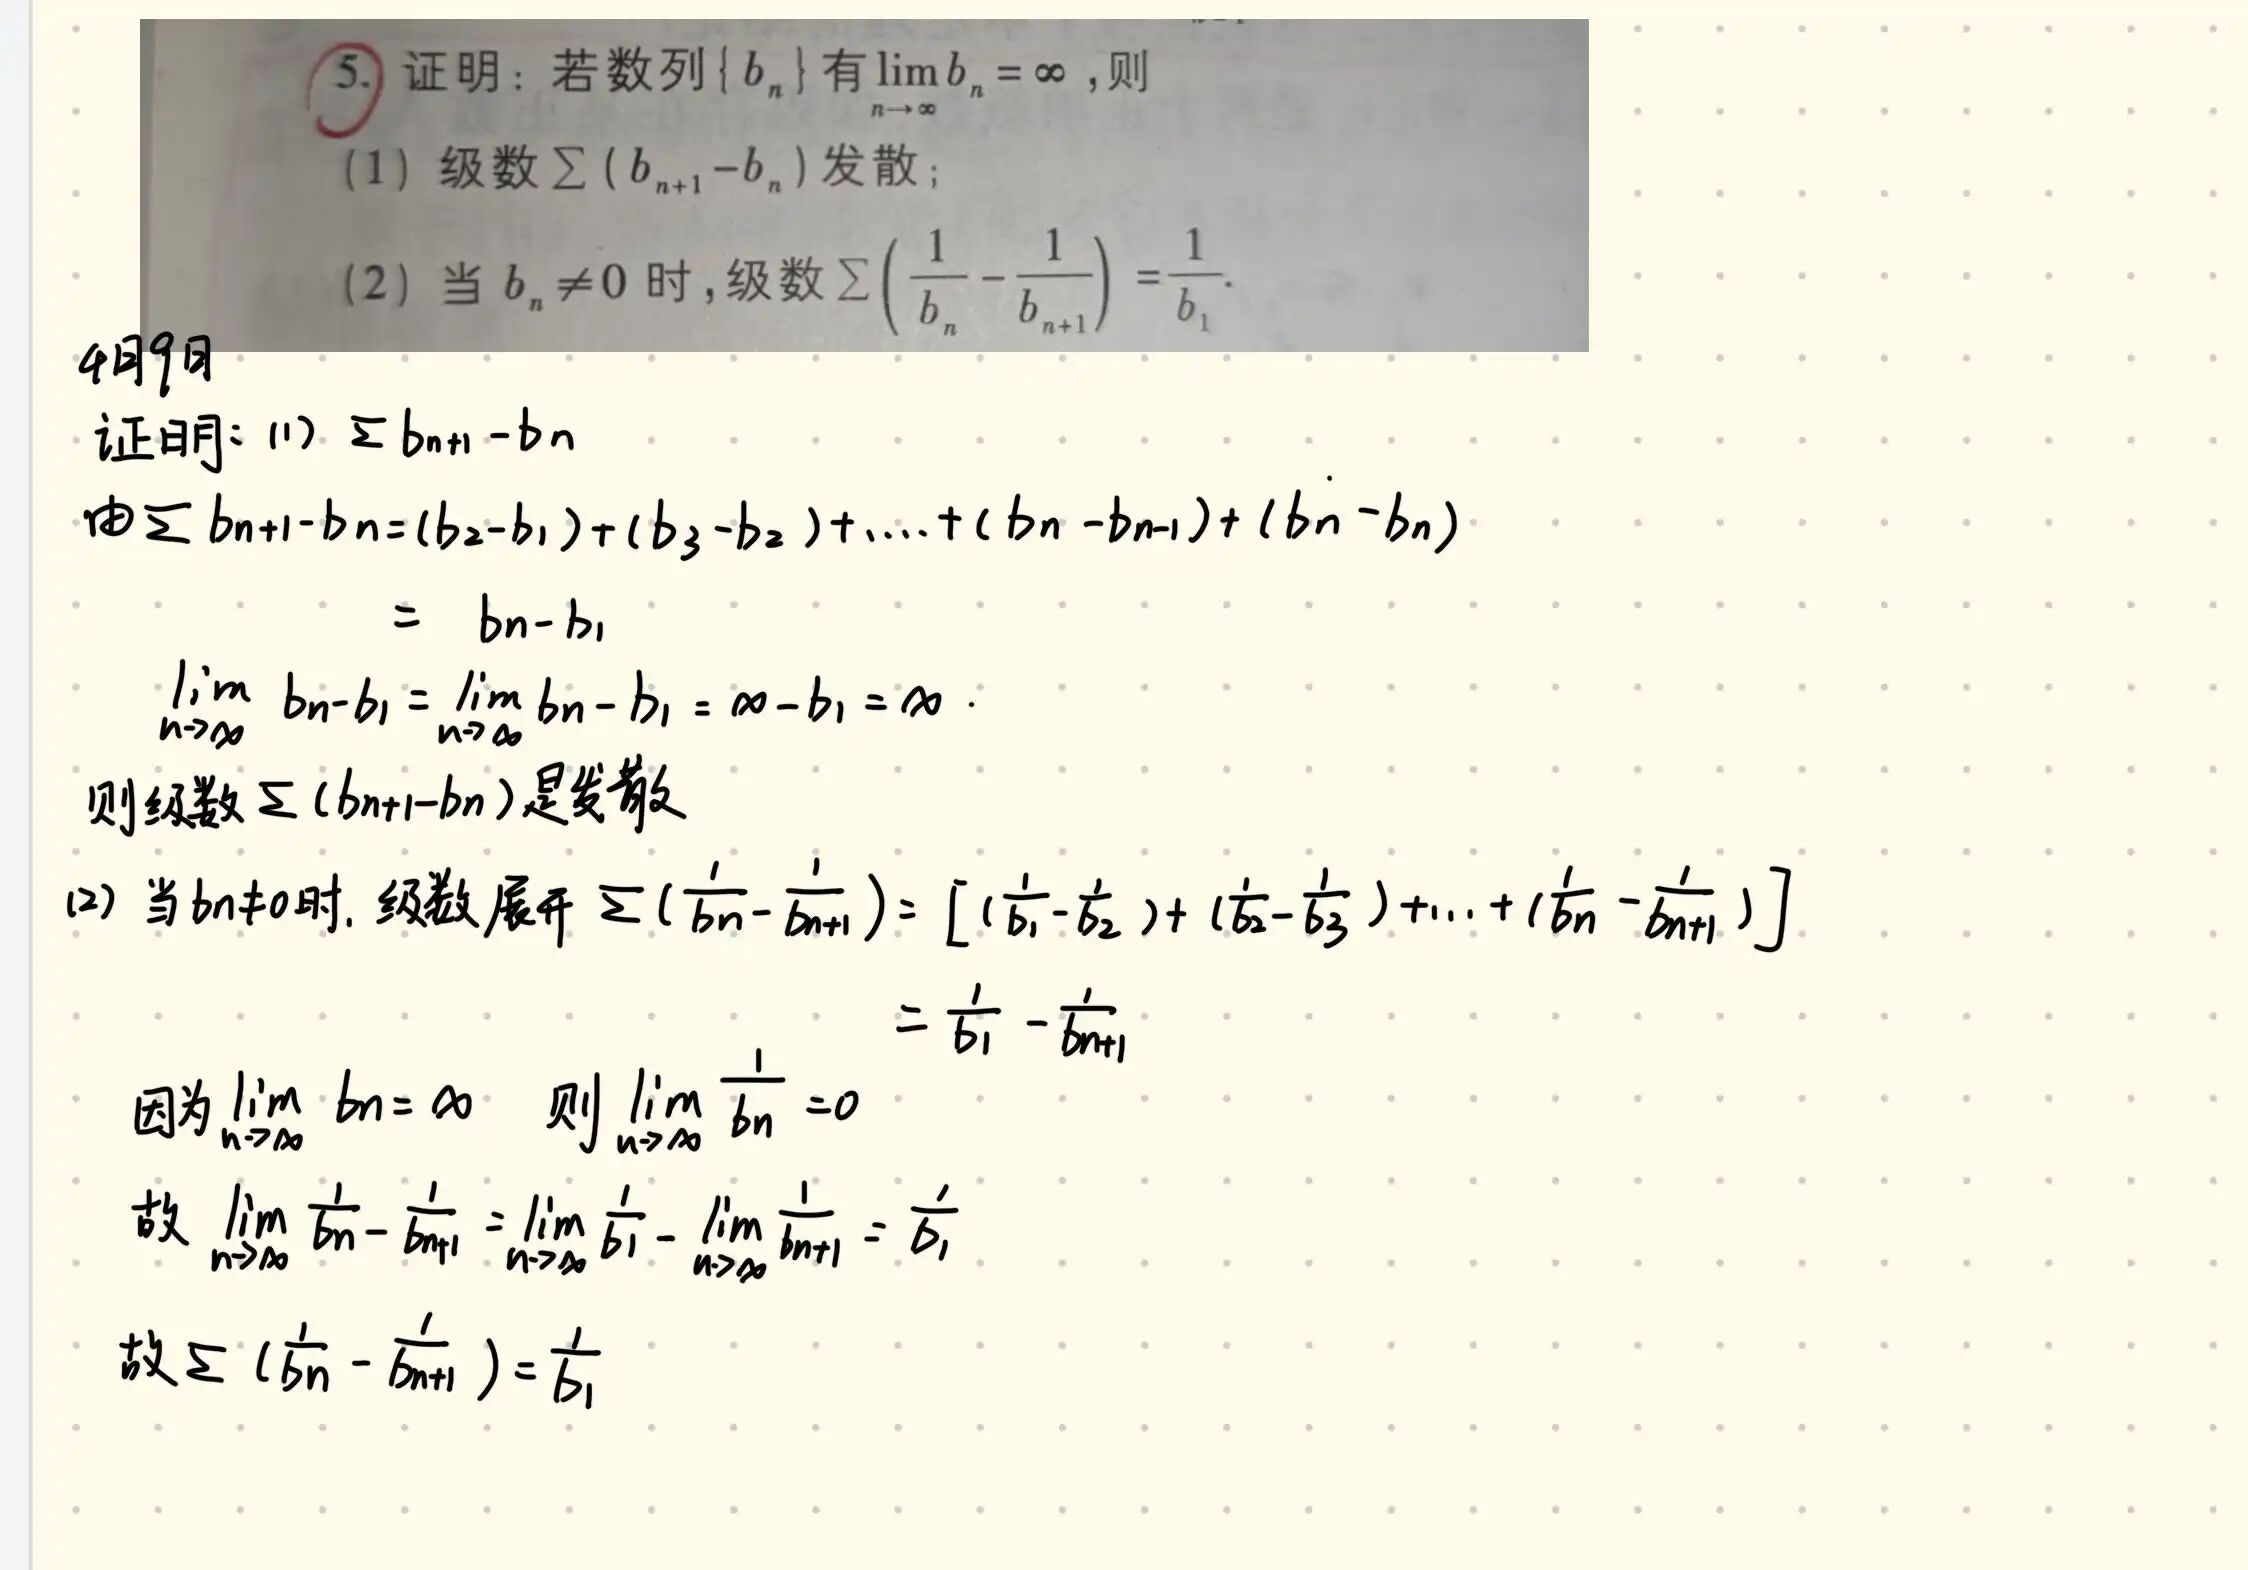 5. 证明：若数列{b_n}有 lim_{n→∞} b_n = ∞ ,则
(1) 级数∑(b_{n+1}-b_n)发散;
(2) 当 b_n≠0 时,级数∑(1/b_n - 1/b_{n+1}) = 1/b_1.
4月9日
证明: (1) Σ b_{n+1} - b_n
由Σ b_{n+1} - b_n = (b_2-b_1)+(b_3-b_2)+....+(b_n-b_{n-1})+(b_n-b_n)
= b_n-b_1
lim_{n→∞} b_n-b_1 = lim_{n→∞} b_n-b_1 = ∞-b_1 = ∞.
则级数Σ(b_{n+1}-b_n)是发散
(2) 当b_n≠0时. 级数展开 Σ(1/b_n - 1/b_{n+1}) = [(1/b_1 - 1/b_2)+(1/b_2 - 1/b_3)+...+(1/b_n - 1/b_{n+1})]
= 1/b_1 - 1/b_{n+1}
因为 lim_{n→∞} b_n = ∞ 则 lim_{n→∞} 1/b_n = 0
故 lim_{n→∞} 1/b_n - 1/b_{n+1} = lim_{n→∞} 1/b_1 - lim_{n→∞} 1/b_{n+1} = 1/b_1
故 Σ (1/b_n - 1/b_{n+1}) = 1/b_1